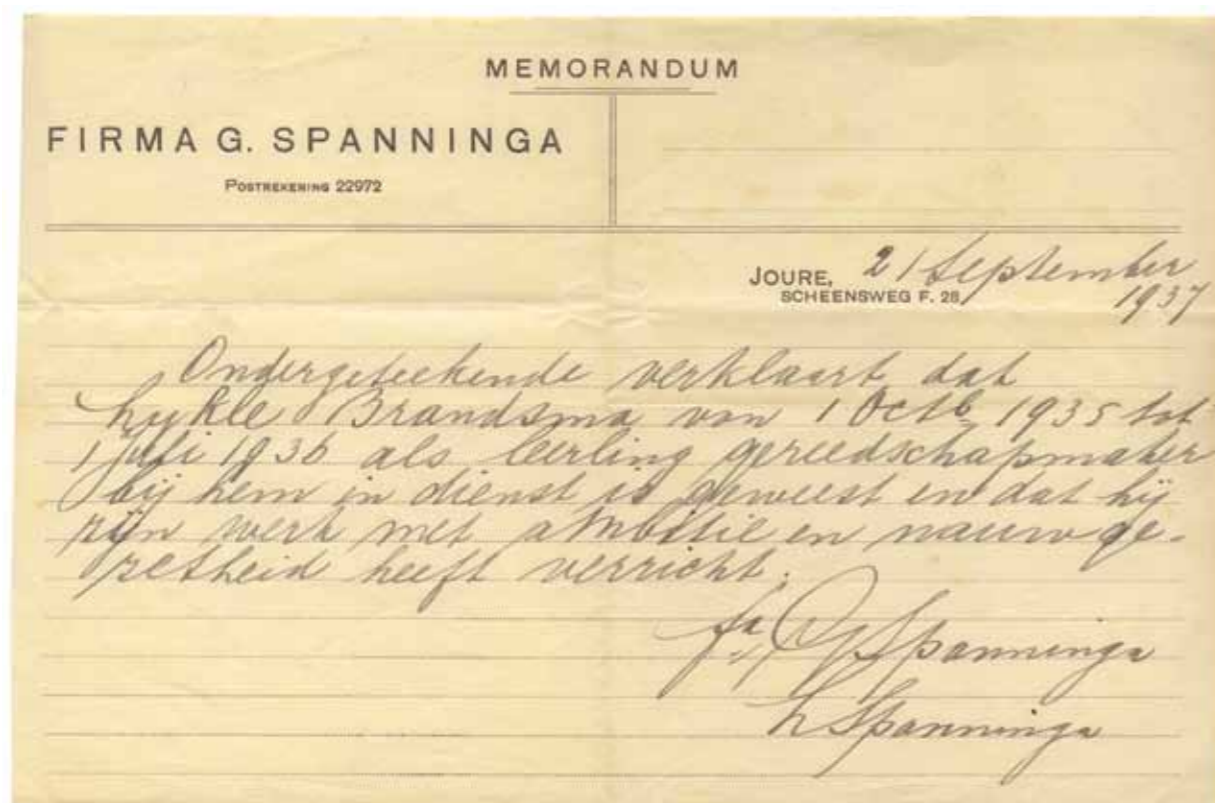 MEMORANDUM
FIRMA G. SPANNINGA
POSTREKENING 22972
JOURE, 21 September
SCHEENSWEG F. 28, 1937
Ondergeteekende verklaart dat
Lykle Brandsma van 1 Octb 1935 tot
1 Juli 1936 als leerling gereedschapmaker
bij hem in dienst is geweest en dat hij
zijn werk met ambitie en nauwge-
zetheid heeft verricht.
fa G Spanninga
L Spanninga